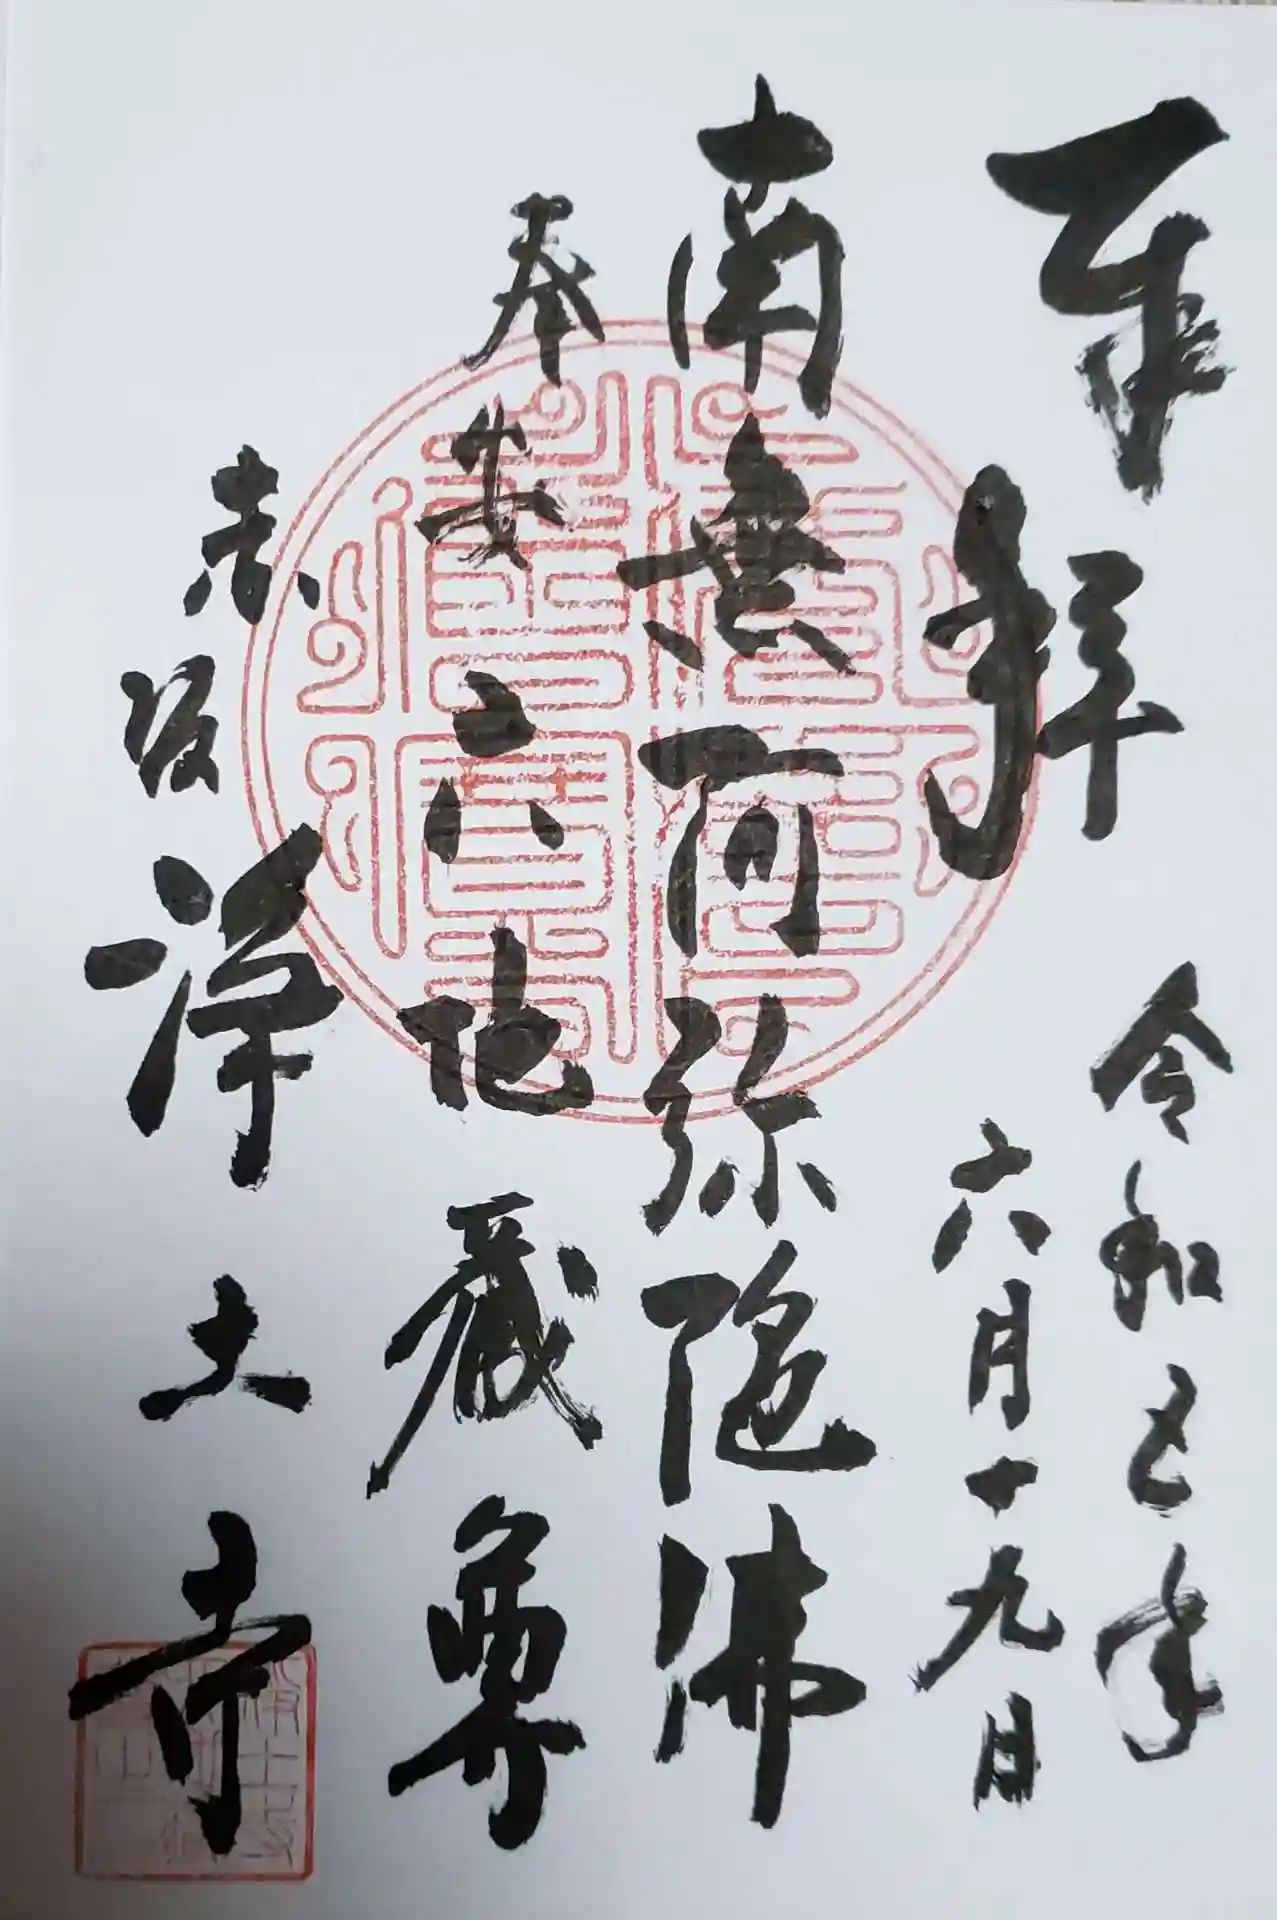 拝
令和五年
六月十九日
南無阿弥陀佛
奉安六地蔵尊
赤坂浄土寺